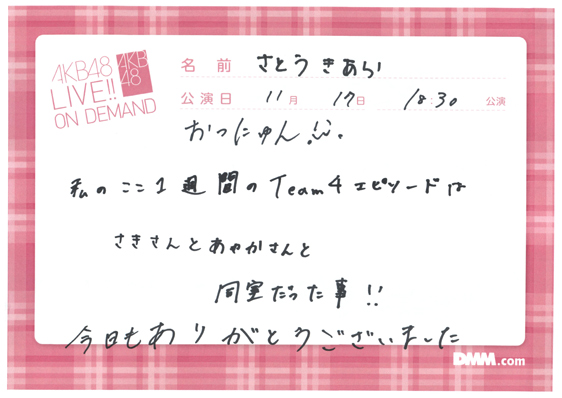 AKB48
LIVE!!
ON DEMAND
AKB
48
名前 さとうきあら
公演日 11月 17日 18:30 公演
おつにゅん!
私のここ1週間のTeam4エピソードは
さきさんとあやかさんと
同室だった事!!
今日もありがとうございました
DMM.com